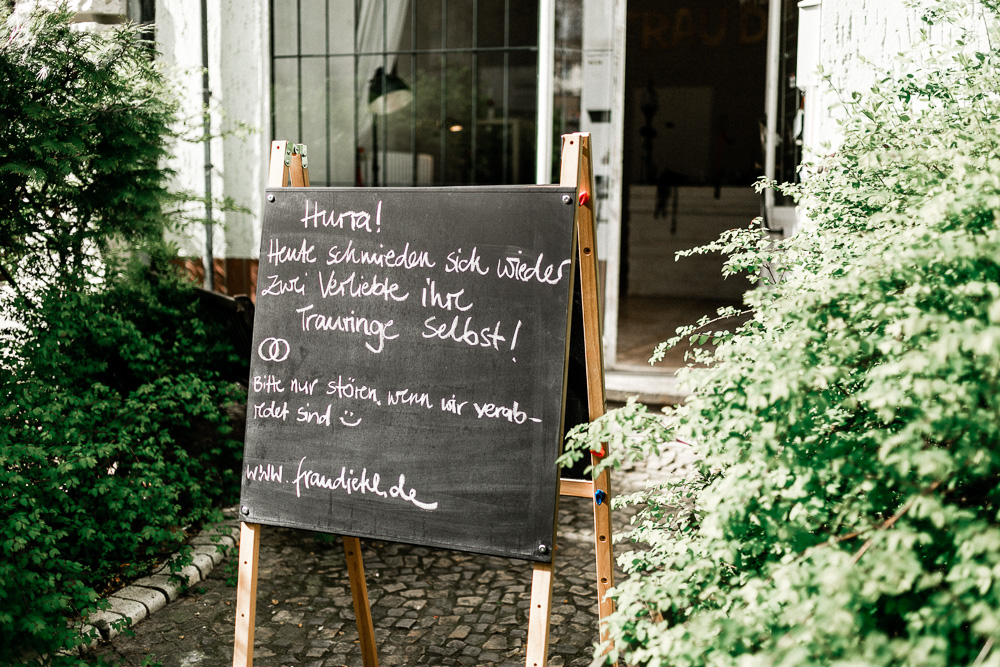 Hurra!
Heute schmieden sich wieder
Zwei Verliebte ihre
Trauringe selbst!
Bitte nur stören, wenn wir verab-
redet sind
www.fraudiehl.de
FRAU D